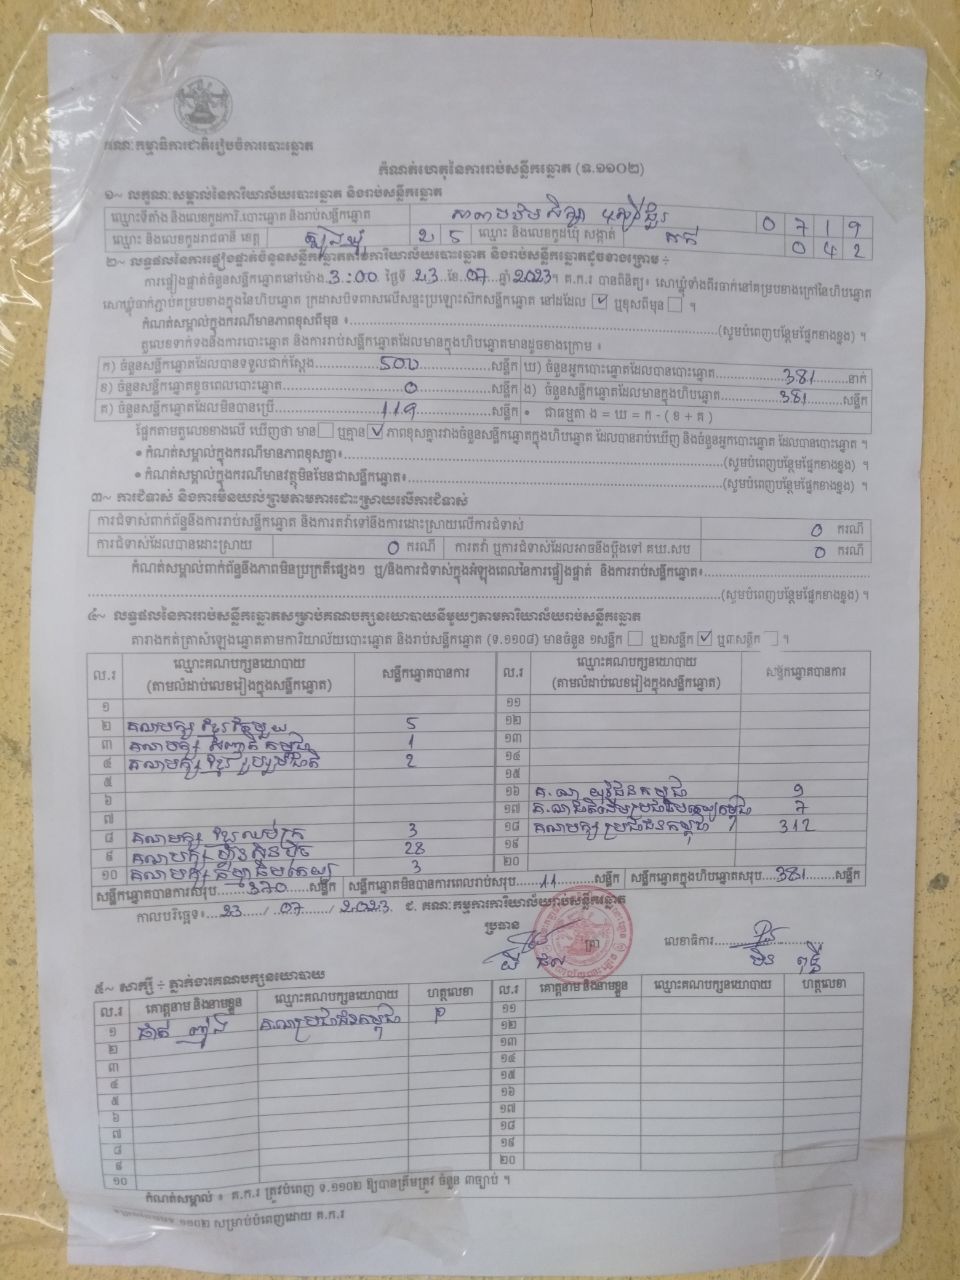 គណៈកម្មាធិការជាតិរៀបចំការបោះឆ្នោត
កំណត់ហេតុនៃការរាប់សន្លឹកឆ្នោត (ទ.១១០២)
១~ លក្ខណៈសម្គាល់នៃការិយាល័យបោះឆ្នោត និងរាប់សន្លឹកឆ្នោត
ឈ្មោះទីតាំង និងលេខកូដការិ.បោះឆ្នោត និងរាប់សន្លឹកឆ្នោត 0 7 1 9
ឈ្មោះ និងលេខកូដរាជធានី ខេត្ត ត្បូងឃ្មុំ 2 5 ឈ្មោះ និងលេខកូដឃុំ សង្កាត់ 0 4 2
២~ លទ្ធផលនៃការផ្ទៀងផ្ទាត់ចំនួនសន្លឹកឆ្នោតតាមការិយាល័យបោះឆ្នោត និងរាប់សន្លឹកឆ្នោតដូចខាងក្រោម ÷
ការផ្ទៀងផ្ទាត់ចំនួនសន្លឹកឆ្នោតនៅម៉ោង 3:00 ថ្ងៃទី 23 ខែ 07 ឆ្នាំ 2023។ គ.ក.រ បានពិនិត្យ៖ សោឃ្លុំទាំងពីរចាក់នៅគម្របខាងក្រៅនៃហិបឆ្នោត
សោឃ្លុំចាក់ភ្ជាប់គម្របខាងក្នុងនៃហិបឆ្នោត ក្រដាសបិទពាសលើសន្ទះប្រឡោះស៊កសន្លឹកឆ្នោត នៅដដែល ☑ ឬខុសពីមុន ☐ ។
កំណត់សម្គាល់ក្នុងករណីមានភាពខុសពីមុន ៖ (សូមបំពេញបន្ថែមផ្នែកខាងខ្នង) ។
តួលេខទាក់ទងនឹងការបោះឆ្នោត និងការរាប់សន្លឹកឆ្នោតដែលមានក្នុងហិបឆ្នោតមានដូចខាងក្រោម ៖
ក) ចំនួនសន្លឹកឆ្នោតដែលបានទទួលជាក់ស្តែង 500 សន្លឹក ឃ) ចំនួនអ្នកបោះឆ្នោតដែលបានបោះឆ្នោត 381 នាក់
ខ) ចំនួនសន្លឹកឆ្នោតខូចពេលបោះឆ្នោត 0 សន្លឹក ង) ចំនួនសន្លឹកឆ្នោតដែលមានក្នុងហិបឆ្នោត 381 សន្លឹក
គ) ចំនួនសន្លឹកឆ្នោតដែលមិនបានប្រើ 119 សន្លឹក • ជាធម្មតា ង = ឃ = ក - ( ខ + គ )
ផ្អែកតាមតួលេខខាងលើ ឃើញថា មាន ☐ ឬគ្មាន ☑ ភាពខុសគ្នារវាងចំនួនសន្លឹកឆ្នោតក្នុងហិបឆ្នោត ដែលបានរាប់ឃើញ និងចំនួនអ្នកបោះឆ្នោត ដែលបានបោះឆ្នោត ។
• កំណត់សម្គាល់ក្នុងករណីមានភាពខុសគ្នា៖ (សូមបំពេញបន្ថែមផ្នែកខាងខ្នង) ។
• កំណត់សម្គាល់ក្នុងករណីមានវត្ថុមិនមែនជាសន្លឹកឆ្នោត៖ (សូមបំពេញបន្ថែមផ្នែកខាងខ្នង) ។
៣~ ការជំទាស់ និងការមិនយល់ព្រមតាមការដោះស្រាយលើការជំទាស់
ការជំទាស់ពាក់ព័ន្ធនឹងការរាប់សន្លឹកឆ្នោត និងការតវ៉ាទៅនឹងការដោះស្រាយលើការជំទាស់ 0 ករណី
ការជំទាស់ដែលបានដោះស្រាយ 0 ករណី ការតវ៉ា ឬការជំទាស់ដែលអាចនឹងប្តឹងទៅ គឃ.សប 0 ករណី
កំណត់សម្គាល់ពាក់ព័ន្ធនឹងភាពមិនប្រក្រតីផ្សេងៗ ឬ/និងការជំទាស់ក្នុងអំឡុងពេលនៃការផ្ទៀងផ្ទាត់ និងការរាប់សន្លឹកឆ្នោត៖
(សូមបំពេញបន្ថែមផ្នែកខាងខ្នង) ។
៤~ លទ្ធផលនៃការរាប់សន្លឹកឆ្នោតសម្រាប់គណបក្សនយោបាយនីមួយៗតាមការិយាល័យរាប់សន្លឹកឆ្នោត
តារាងកត់ត្រាសំឡេងឆ្នោតតាមការិយាល័យបោះឆ្នោត និងរាប់សន្លឹកឆ្នោត (ទ.១១០៨) មានចំនួន ១សន្លឹក ☐ ឬ២សន្លឹក ☑ ឬ៣សន្លឹក ☐ ។
ល.រ ឈ្មោះគណបក្សនយោបាយ (តាមលំដាប់លេខរៀងក្នុងសន្លឹកឆ្នោត) សន្លឹកឆ្នោតបានការ ល.រ ឈ្មោះគណបក្សនយោបាយ (តាមលំដាប់លេខរៀងក្នុងសន្លឹកឆ្នោត) សន្លឹកឆ្នោតបានការ
១ ១១
២ គណបក្ស ខ្មែរតែមួយ 5 ១២
៣ គណបក្ស 1 ១៣
៤ គណបក្ស ខ្មែរ រួបរួមជាតិ 2 ១៤
៥ ១៥
៦ ១៦ គ.ណ យុវជនកម្ពុជា 9
៧ ១៧ 7
៨ គណបក្ស ខ្មែរឈប់ក្រ 3 ១៨ គណបក្ស ប្រជាជនកម្ពុជា 312
៩ គណបក្ស ហ្វ៊ុនស៊ិនប៉ិច 28 ១៩
១០ គណបក្ស 3 ២០
សន្លឹកឆ្នោតបានការសរុប 370 សន្លឹក សន្លឹកឆ្នោតមិនបានការពេលរាប់សរុប 11 សន្លឹក សន្លឹកឆ្នោតក្នុងហិបឆ្នោតសរុប 381 សន្លឹក
កាលបរិច្ឆេទ៖ 23 / 07 / 2023 ជ. គណៈកម្មការការិយាល័យរាប់សន្លឹកឆ្នោត
ប្រធាន ត្រា លេខាធិការ
៥~ សាក្សី ÷ ភ្នាក់ងារគណបក្សនយោបាយ
ល.រ គោត្តនាម និងនាមខ្លួន ឈ្មោះគណបក្សនយោបាយ ហត្ថលេខា ល.រ គោត្តនាម និងនាមខ្លួន ឈ្មោះគណបក្សនយោបាយ ហត្ថលេខា
១ គណប្រជាជនកម្ពុជា ១១
២ ១២
៣ ១៣
៤ ១៤
៥ ១៥
៦ ១៦
៧ ១៧
៨ ១៨
៩ ១៩
១០ ២០
កំណត់សម្គាល់ ៖ គ.ក.រ ត្រូវបំពេញ ទ.១១០២ ឱ្យបានត្រឹមត្រូវ ចំនួន ៣ច្បាប់ ។
១១០២ សម្រាប់បំពេញដោយ គ.ក.រ